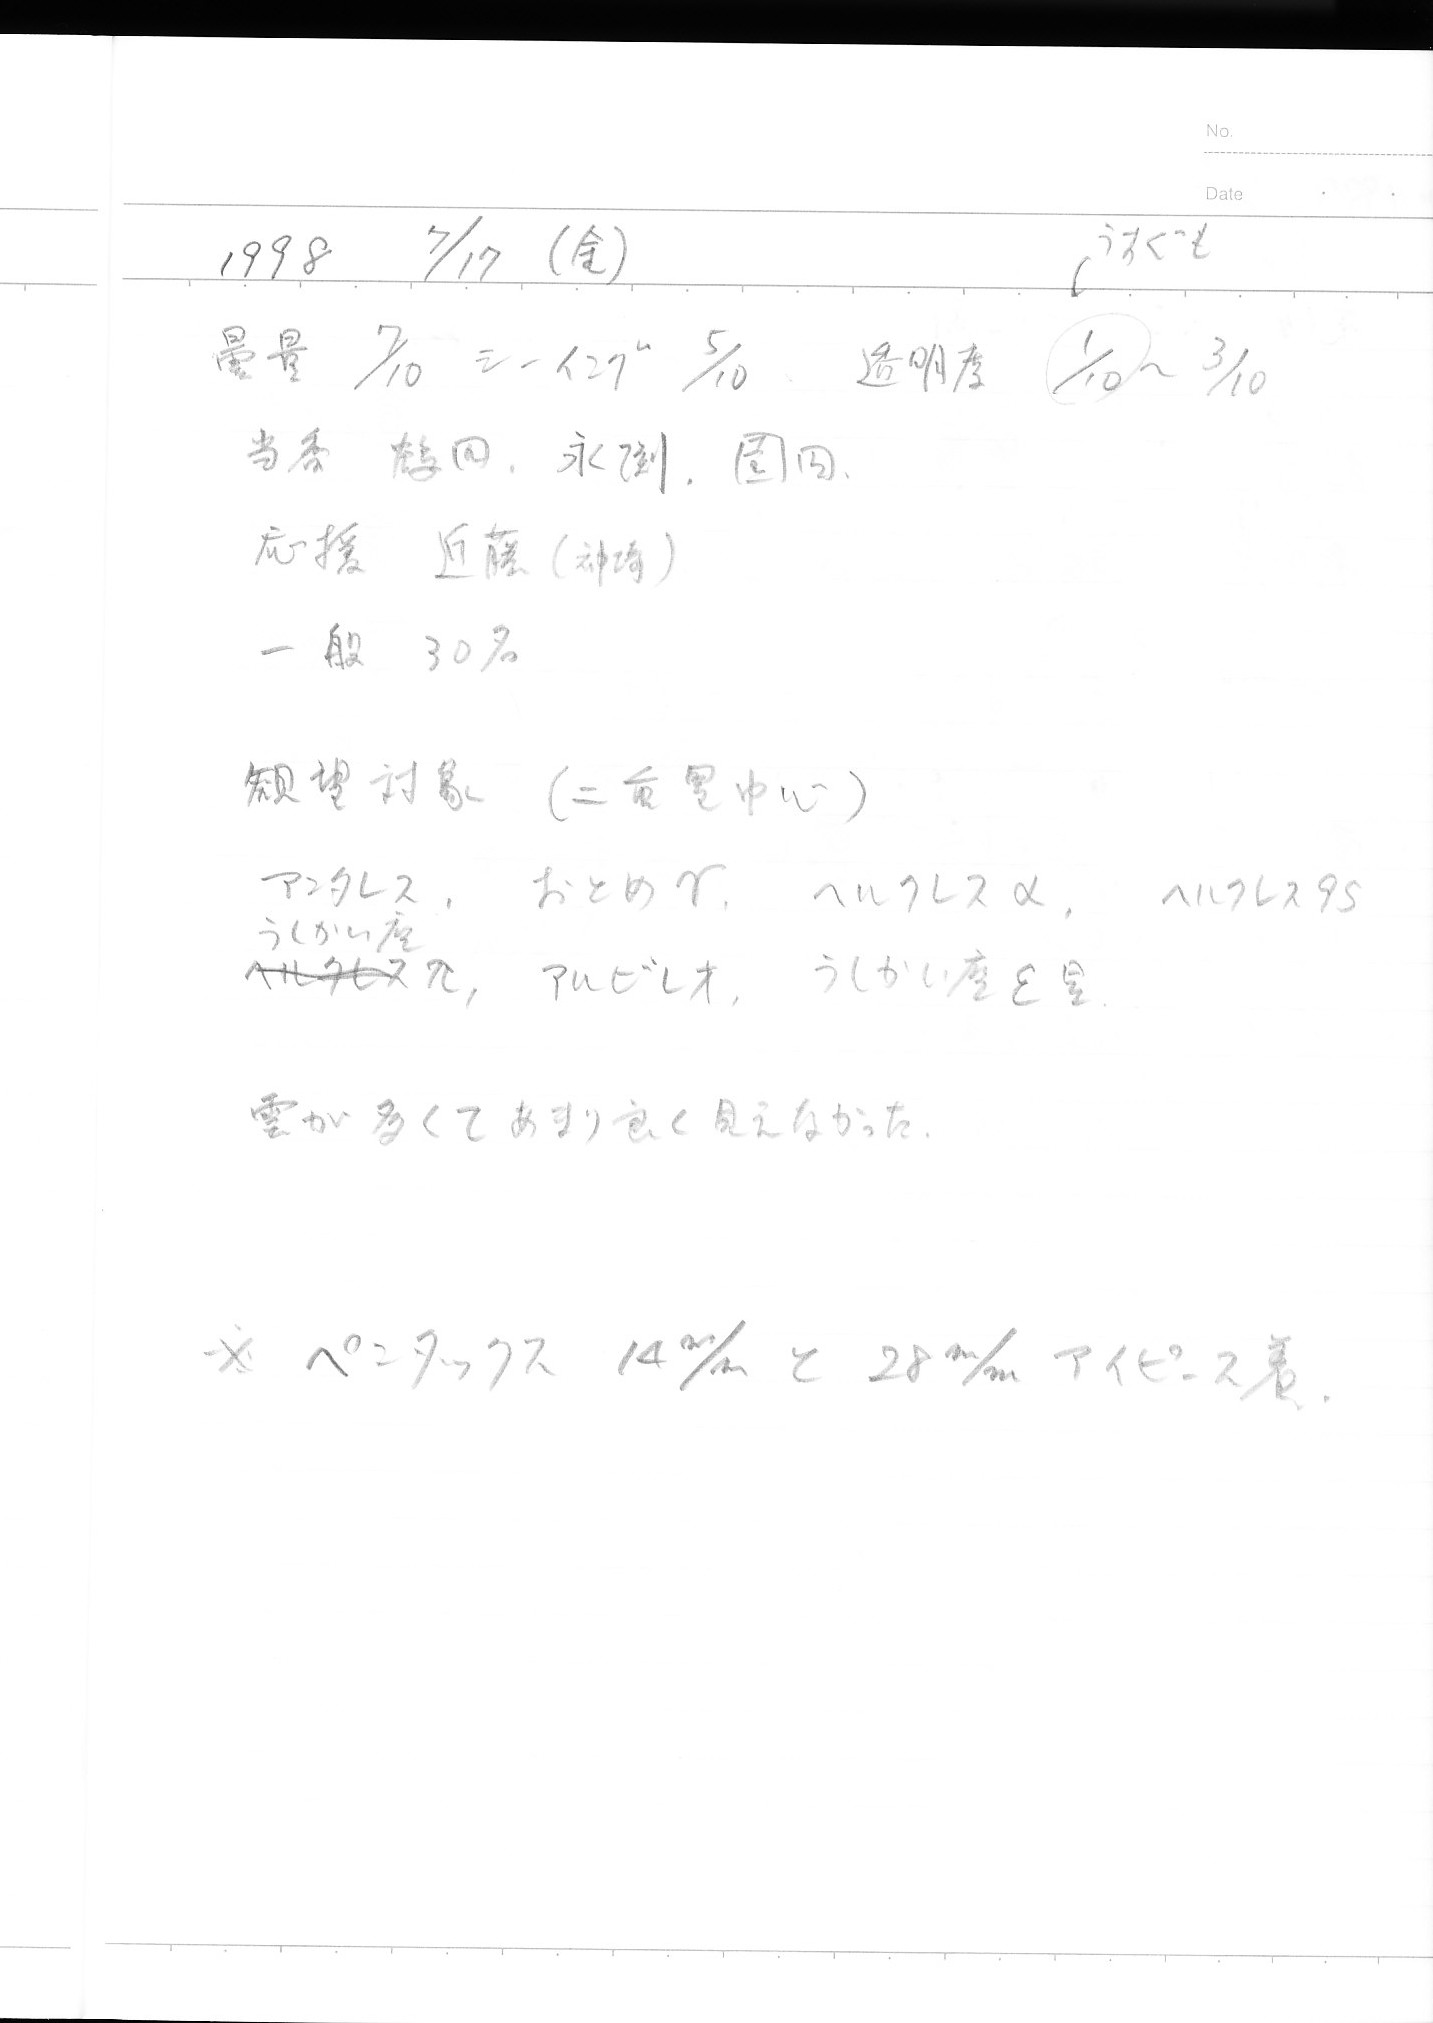 No.
Date
1998 7/17 (金)
うすぐも
曇量 7/10 シーイング 5/10 透明度 1/10~3/10
当番 田. 永. 園田.
応援 近藤(神崎)
一般 30名
観望対象 (二重星中心)
アンタレス, おとめγ, ヘルクレスα, ヘルクレス95
うしかい座
ヘルクレスπ, アルビレオ, うしかい座ε星.
雲が多くてあまり良く見えなかった.
※ ペンタックス 14m/m と 28m/m アイピース着.